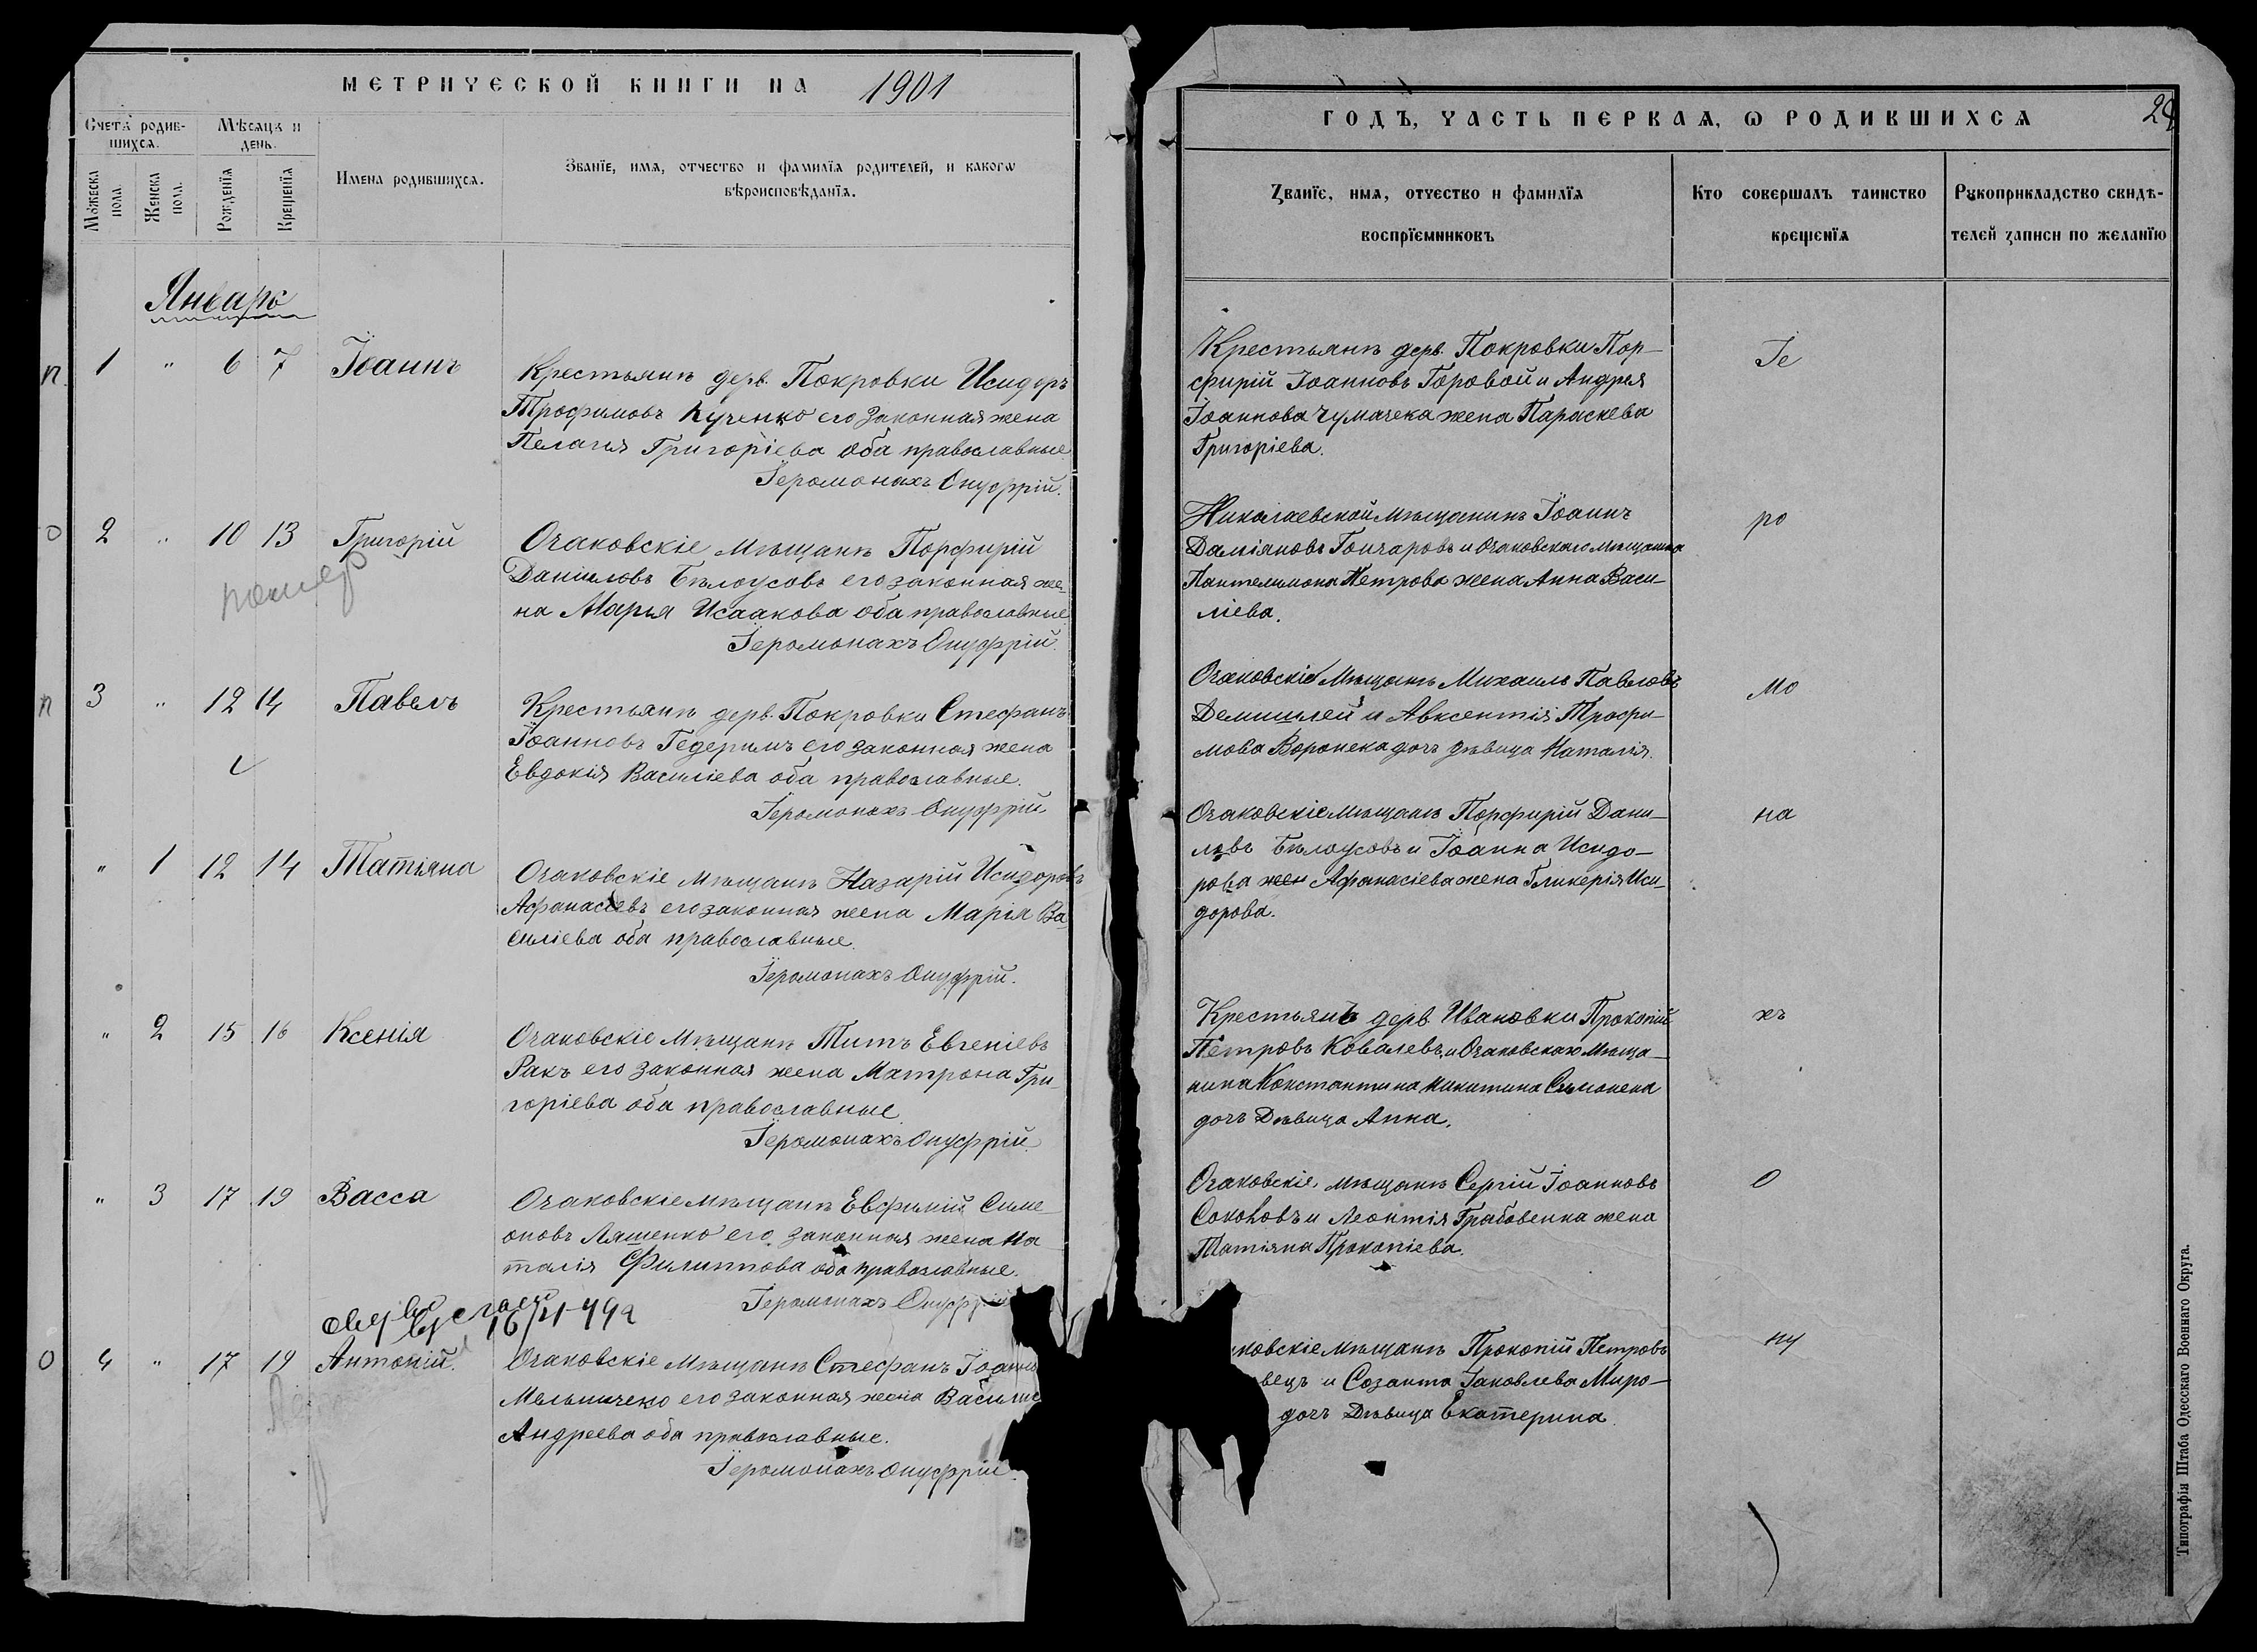 МЕТРИЧЕСКОЙ КНИГИ НА 1901
Счетъ родив-
шихся.
Мѣсяцъ и
день.
Мужеска
пола.
Женска
пола.
Рожденїя
Крещенїя
Имена родившихся.
Званїе, имя, отчество и фамилїя родителей, и какогѡ
вѣроисповѣданїя.
Январь
п 1 " 6 7 Іоаннъ
Крестьянъ дерв. Покровки Исидоръ
Трофимовъ Куценко его законная жена
Пелагія Григоріева оба православные
Іеромонахъ Онуфрій.
о 2 " 10 13 Григорій
Очаковскіе мѣщанъ Порфирій
Даніиловъ Бѣлоусовъ его законная же-
на Марья Исаакова оба православные
Іеромонахъ Онуфрій.
п 3 " 12 14 Павелъ
Крестьянъ дерв. Покровки Стефанъ
Іоанновъ его законная жена
Евдокія Василіева оба православные.
Іеромонахъ Онуфрій.
" 1 12 14 Татіяна
Очаковскіе мѣщанъ Назарій Исидоровъ
Афанасіевъ его законная жена Марія Ва-
силіева оба православные.
Іеромонахъ Онуфрій.
" 2 15 16 Ксенія
Очаковскіе мѣщанъ Титъ Евгеніевъ
Ракъ его законная жена Матрона Гри-
горіева оба православные
Іеромонахъ Онуфрій.
" 3 17 19 Васса
Очаковскіе мѣщанъ Евфимій Симе-
оновъ Ляшенко его законная жена На
талія Филиппова оба православные.
Іеромонахъ Онуфрій
О 4 " 17 19 Антоній.
Очаковскіе мѣщанъ Стефанъ Іоанн
Мельниченко его законная жена Васили
Андреева оба православные.
Іеромонахъ Онуфрій.
ГОДЪ, ЧАСТЬ ПЕРВАЯ, Ѡ РОДИВШИХСЯ
29
Званїе, имя, отчество и фамилїя
воспрїемниковъ
Кто совершалъ таинство
крещенїя
Рукоприкладство свидѣ-
телей записи по желанїю
Крестьянъ дерв. Покровки Пор-
фирій Іоанновъ Горовой и Андрея
Іоаннова Чумачека жена Параскева
Григоріева.
Іе
Николаевской мѣщанинъ Іоаннъ
Даміановъ Гончаровъ и Очаковскаго мѣщанина
Пантелимона Петрова жена Анна Васи-
ліева.
ро
Очаковскіе мѣщанъ Михаилъ Павловъ
и Авксентія Трофи-
мова Воронека дочъ дѣвица Наталія.
мо
Очаковскіе мѣщанъ Порфирій Дани-
ловъ Бѣлоусовъ и Іоанна Исидо-
рова жен Афанасіева жена Гликерія Иси-
дорова.
на
Крестьянъ дерв. Ивановки Прокопій
Петровъ Ковалевъ и Очаковскаго мѣща-
нина Константина Никитина Симонена
дочъ Дѣвица Анна.
хъ
Очаковскіе мѣщанъ Сергій Іоанновъ
Соколовъ и Леонтія Грабовенка жена
Татіяна Прокопіева.
О
ковскіе мѣщанъ Прокопій Петровъ
вецъ и Созанта Іаковлева Миро-
дочъ Дѣвица Екатерина.
ну
Типографія Штаба Одесскаго Военнаго Округа.